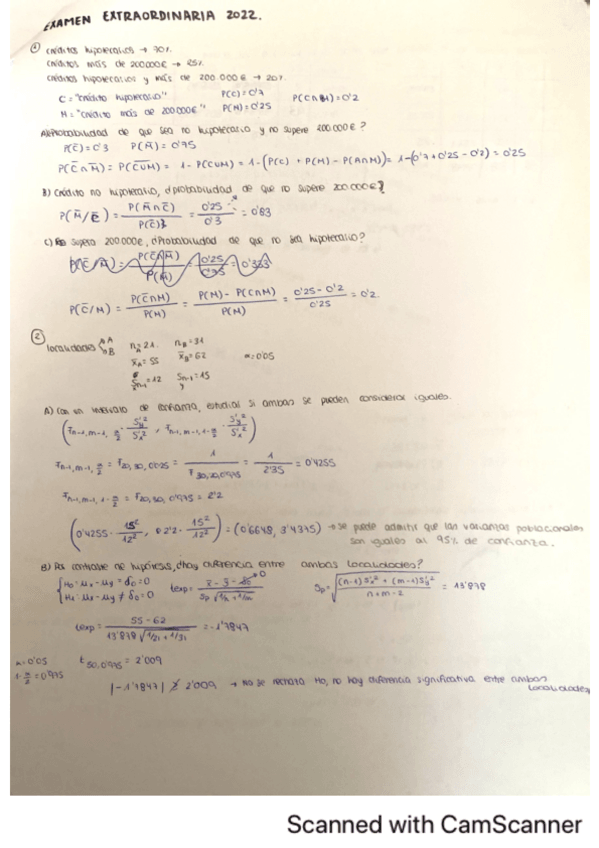 EXAMEN EXTRAORDINARIA 2022.
① Créditos hipotecarios → 70%
Créditos más de 200.000€ → 25%
Créditos hipotecarios y más de 200.000€ → 20%
C = "Crédito hipotecario" P(C)=0'7 P(C∩M)=0'2
M = "Crédito más de 200.000€" P(M)=0'25
A) Probabilidad de que sea no hipotecario y no supere 200.000€?
P(C̄)=0'3 P(M̄)=0'75
P(C̄∩M̄) = P(C̄ŪM̄) = 1-P(C∪M) = 1-(P(C) + P(M) - P(A∩M)) = 1-(0'7+0'25-0'2) = 0'25
B) Crédito no hipotecario, ¿probabilidad de que no supere 200.000€?
P(M̄/C̄) = P(M̄∩C̄)/P(C̄) = 0'25/0'3 = 0'83
C) Supera 200.000€, ¿Probabilidad de que no sea hipotecario?
P(C̄/M̄) = P(C̄∩M̄)/P(M̄) = 0'25/0'75 = 0'333
P(C̄/M) = P(C̄∩M)/P(M) = P(M)-P(C∩M)/P(M) = 0'25-0'2/0'25 = 0'2
②
localidades A B n_A=21 n_B=31
x̄_A=55 x̄_B=62 α=0'05
S_n-1=12 S_n-1=15
A) Con un intervalo de confianza, estudiar si ambas se pueden considerar iguales.
(F_n-1,m-1,α/2 · S_y'²/S_x'² , F_n-1,m-1,1-α/2 · S_y'²/S_x'²)
F_n-1,m-1,α/2 = F_20,30,0'025 = 1/F_30,20,0'975 = 1/2'35 = 0'4255
F_n-1,m-1,1-α/2 = F_20,30,0'975 = 2'2
(0'4255 · 15²/12² , 2'2 · 15²/12²) = (0'6648, 3'4375) → se puede admitir que las varianzas poblacionales
son iguales al 95% de confianza.
B) Por contraste de hipótesis, ¿hay diferencia entre ambas localidades?
{H₀: μx-μy = δ₀ = 0 t_exp = x̄-ȳ-δ₀/Sp√1/n+1/m →0 Sp = √(n-1)S_x'²+(m-1)S_y'²/n+m-2 = 13'878
H₁: μx-μy ≠ δ₀ = 0
t_exp = 55-62/13'878√1/21+1/31 = -1'7847
α=0'05 t_50,0'975 = 2'009
1-α/2=0'975
|-1'7847| ≯ 2'009 → No se rechaza H₀, no hay diferencia significativa entre ambas
localidades
Scanned with CamScanner